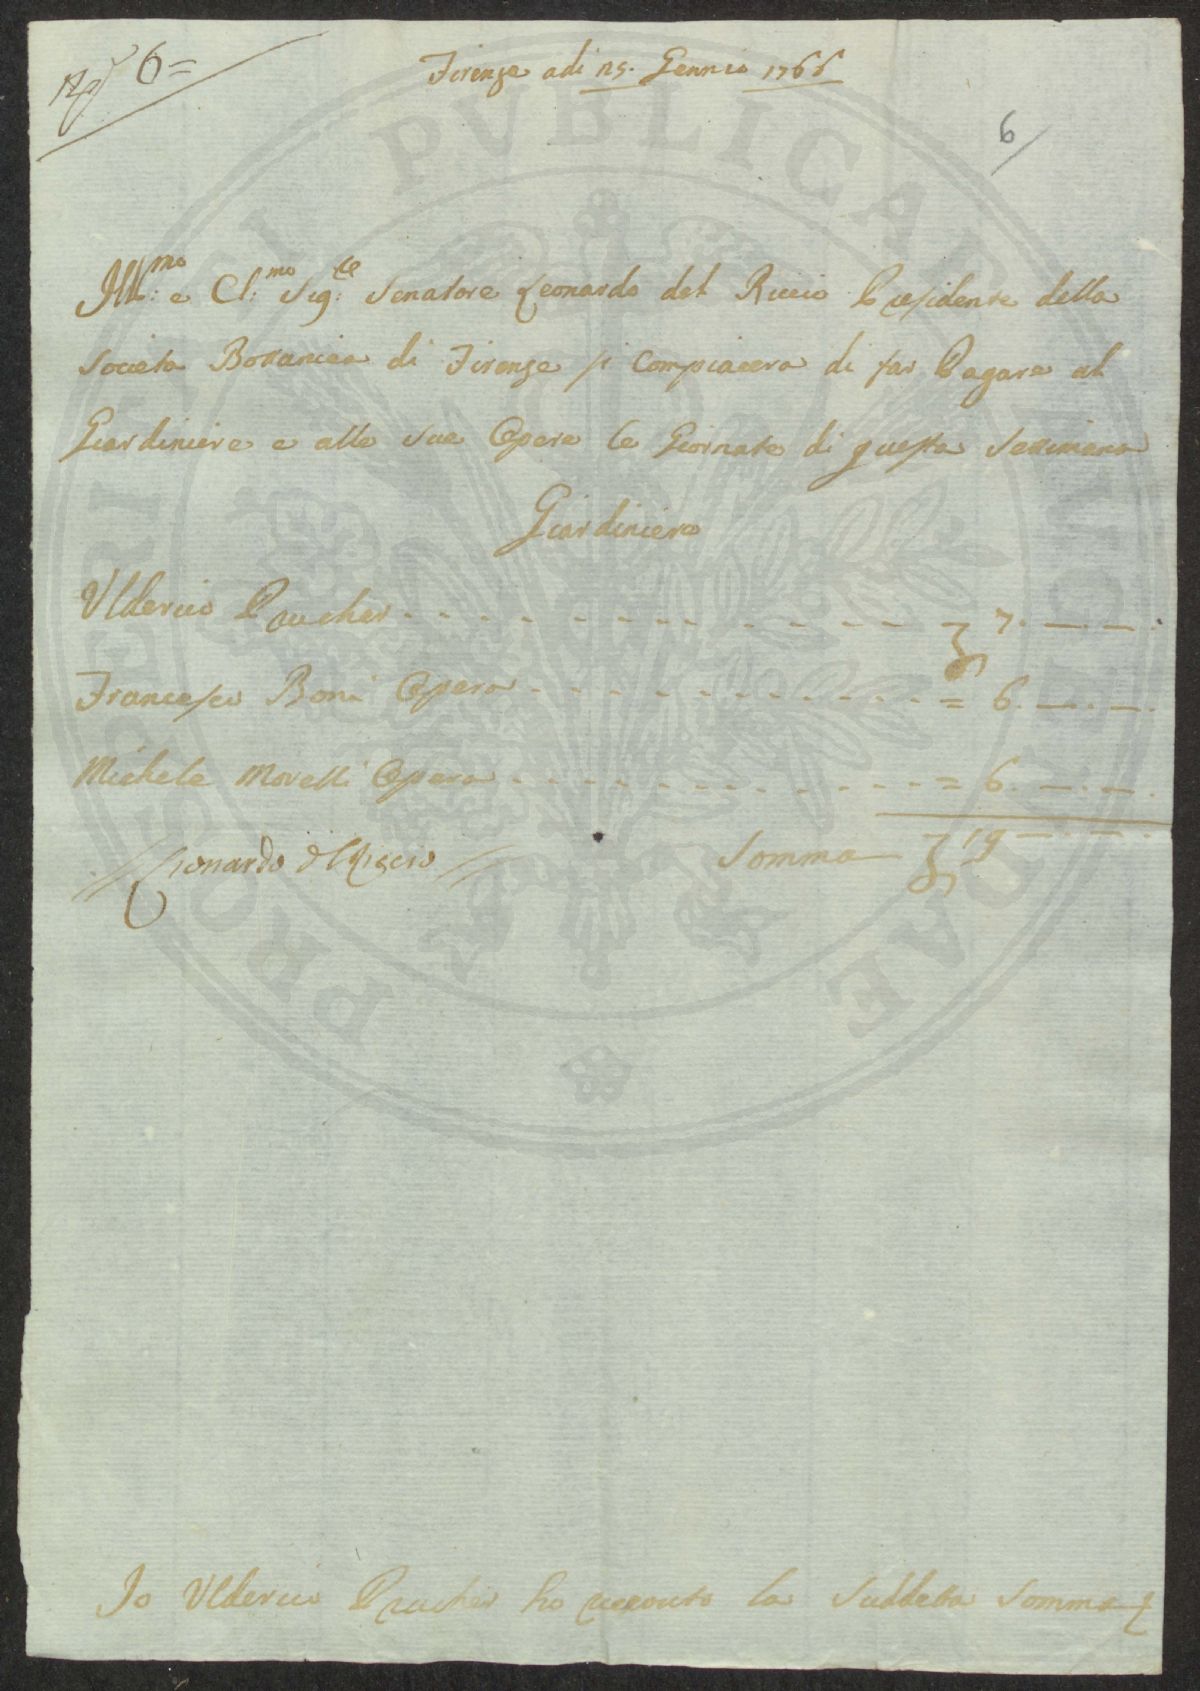 N.º 6=
Firenze adi 25. Gennaio 1766
6
Ill:mo e Cl:mo Sig:re Senatore Leonardo del Riccio Presidente della
Società Bottanica di Firenze si Compiacera di far Pagare al
Giardiniere e alle sue Opere le Giornate di questa Settimana
Giardiniere
Ulderico Prucher - - - - - - - - - - - - 7. — . — .
Francesco Boni Opera - - - - - - - - - - - = 6. — . — .
Michele Morelli Opera - - - - - - - - - - - = 6. — . — .
Leonardo d Riccio Somma 19 — . — .
Io Ulderico Prucher ho riceuto la Suddetta Somma
PROSPERITATI PVBLICAE AVGENDAE